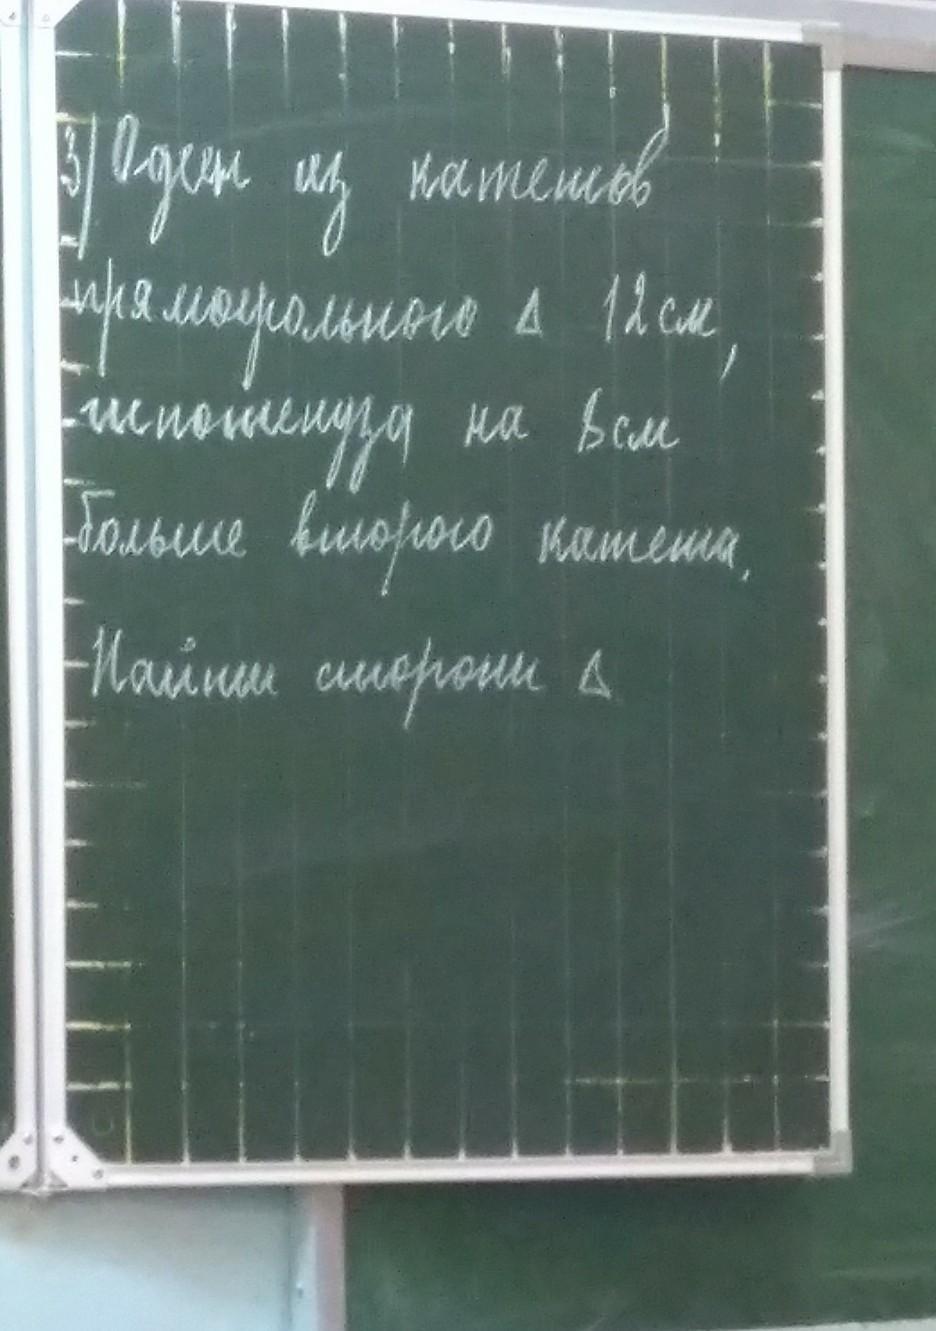 3) Один из катетов
прямоугольного Δ 12 см,
гипотенуза на 8 см
больше второго катета.
Найти стороны Δ